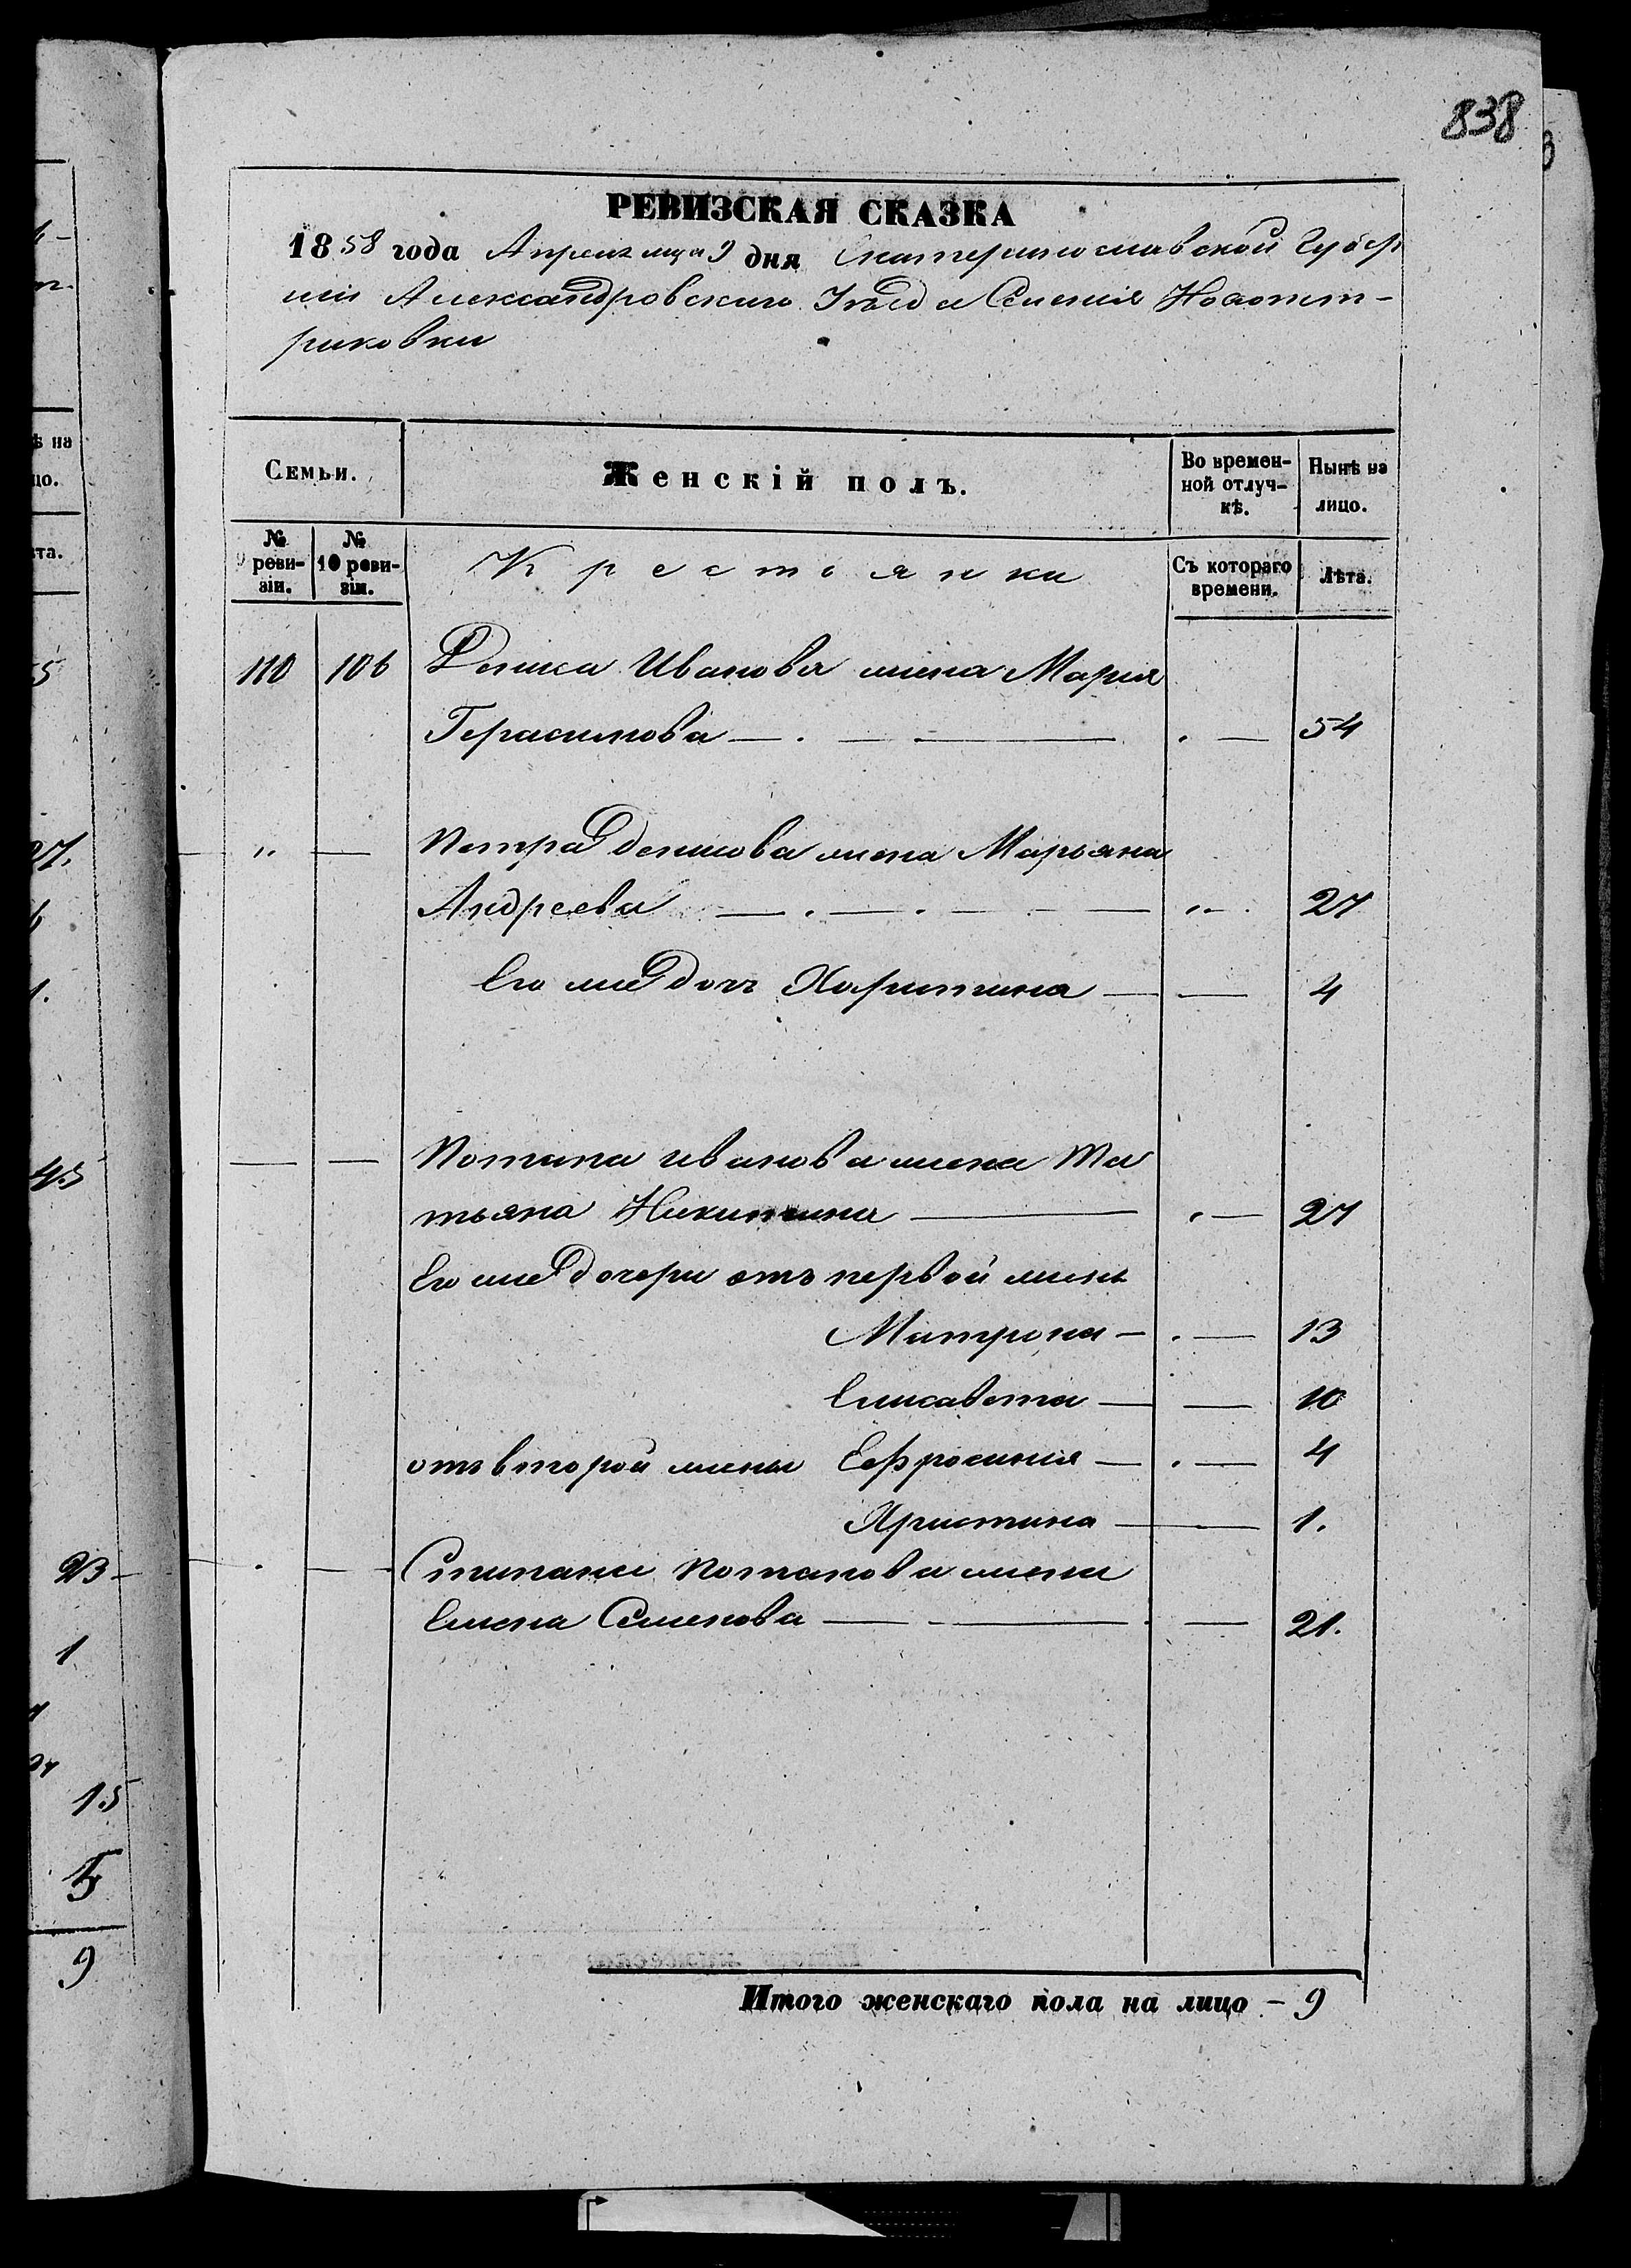 838
РЕВИЗСКАЯ СКАЗКА
1858 года Апреля мца 9 дня Екатеринославской Губер
ніи Александровскаго Уѣзда Селенія
риковки
Семьи.
Женскій полъ.
Во времен-
ной отлуч-
кѣ.
Нынѣ на
лицо.
№
9 реви-
зіи.
№
10 реви-
зіи.
Крестьянки
Съ котораго
времени.
Лѣта.
110 106 Дениса Иванова жена Мария
Герасимова — . — — . — 54
" — Петра Денисова жена Марьяна
Андреева — . — . — — — " — 27
Его же дочь Харитина — — 4
— — Потапа Иванова жена Та
тьяна Никитина — " — 27
Его же дочери отъ первой жены
Матрона — . — 13
Елисавета — — 10
отъ второй жены Ефросиния — . — 4
Христина — — 1.
— . — Степана Потапова жена
Елена Семенова — - — . — 21.
Итого женскаго пола на лицо – 9
ѣ на
цо.
та.
5
27.
6
1.
43
23
1
15
5
9